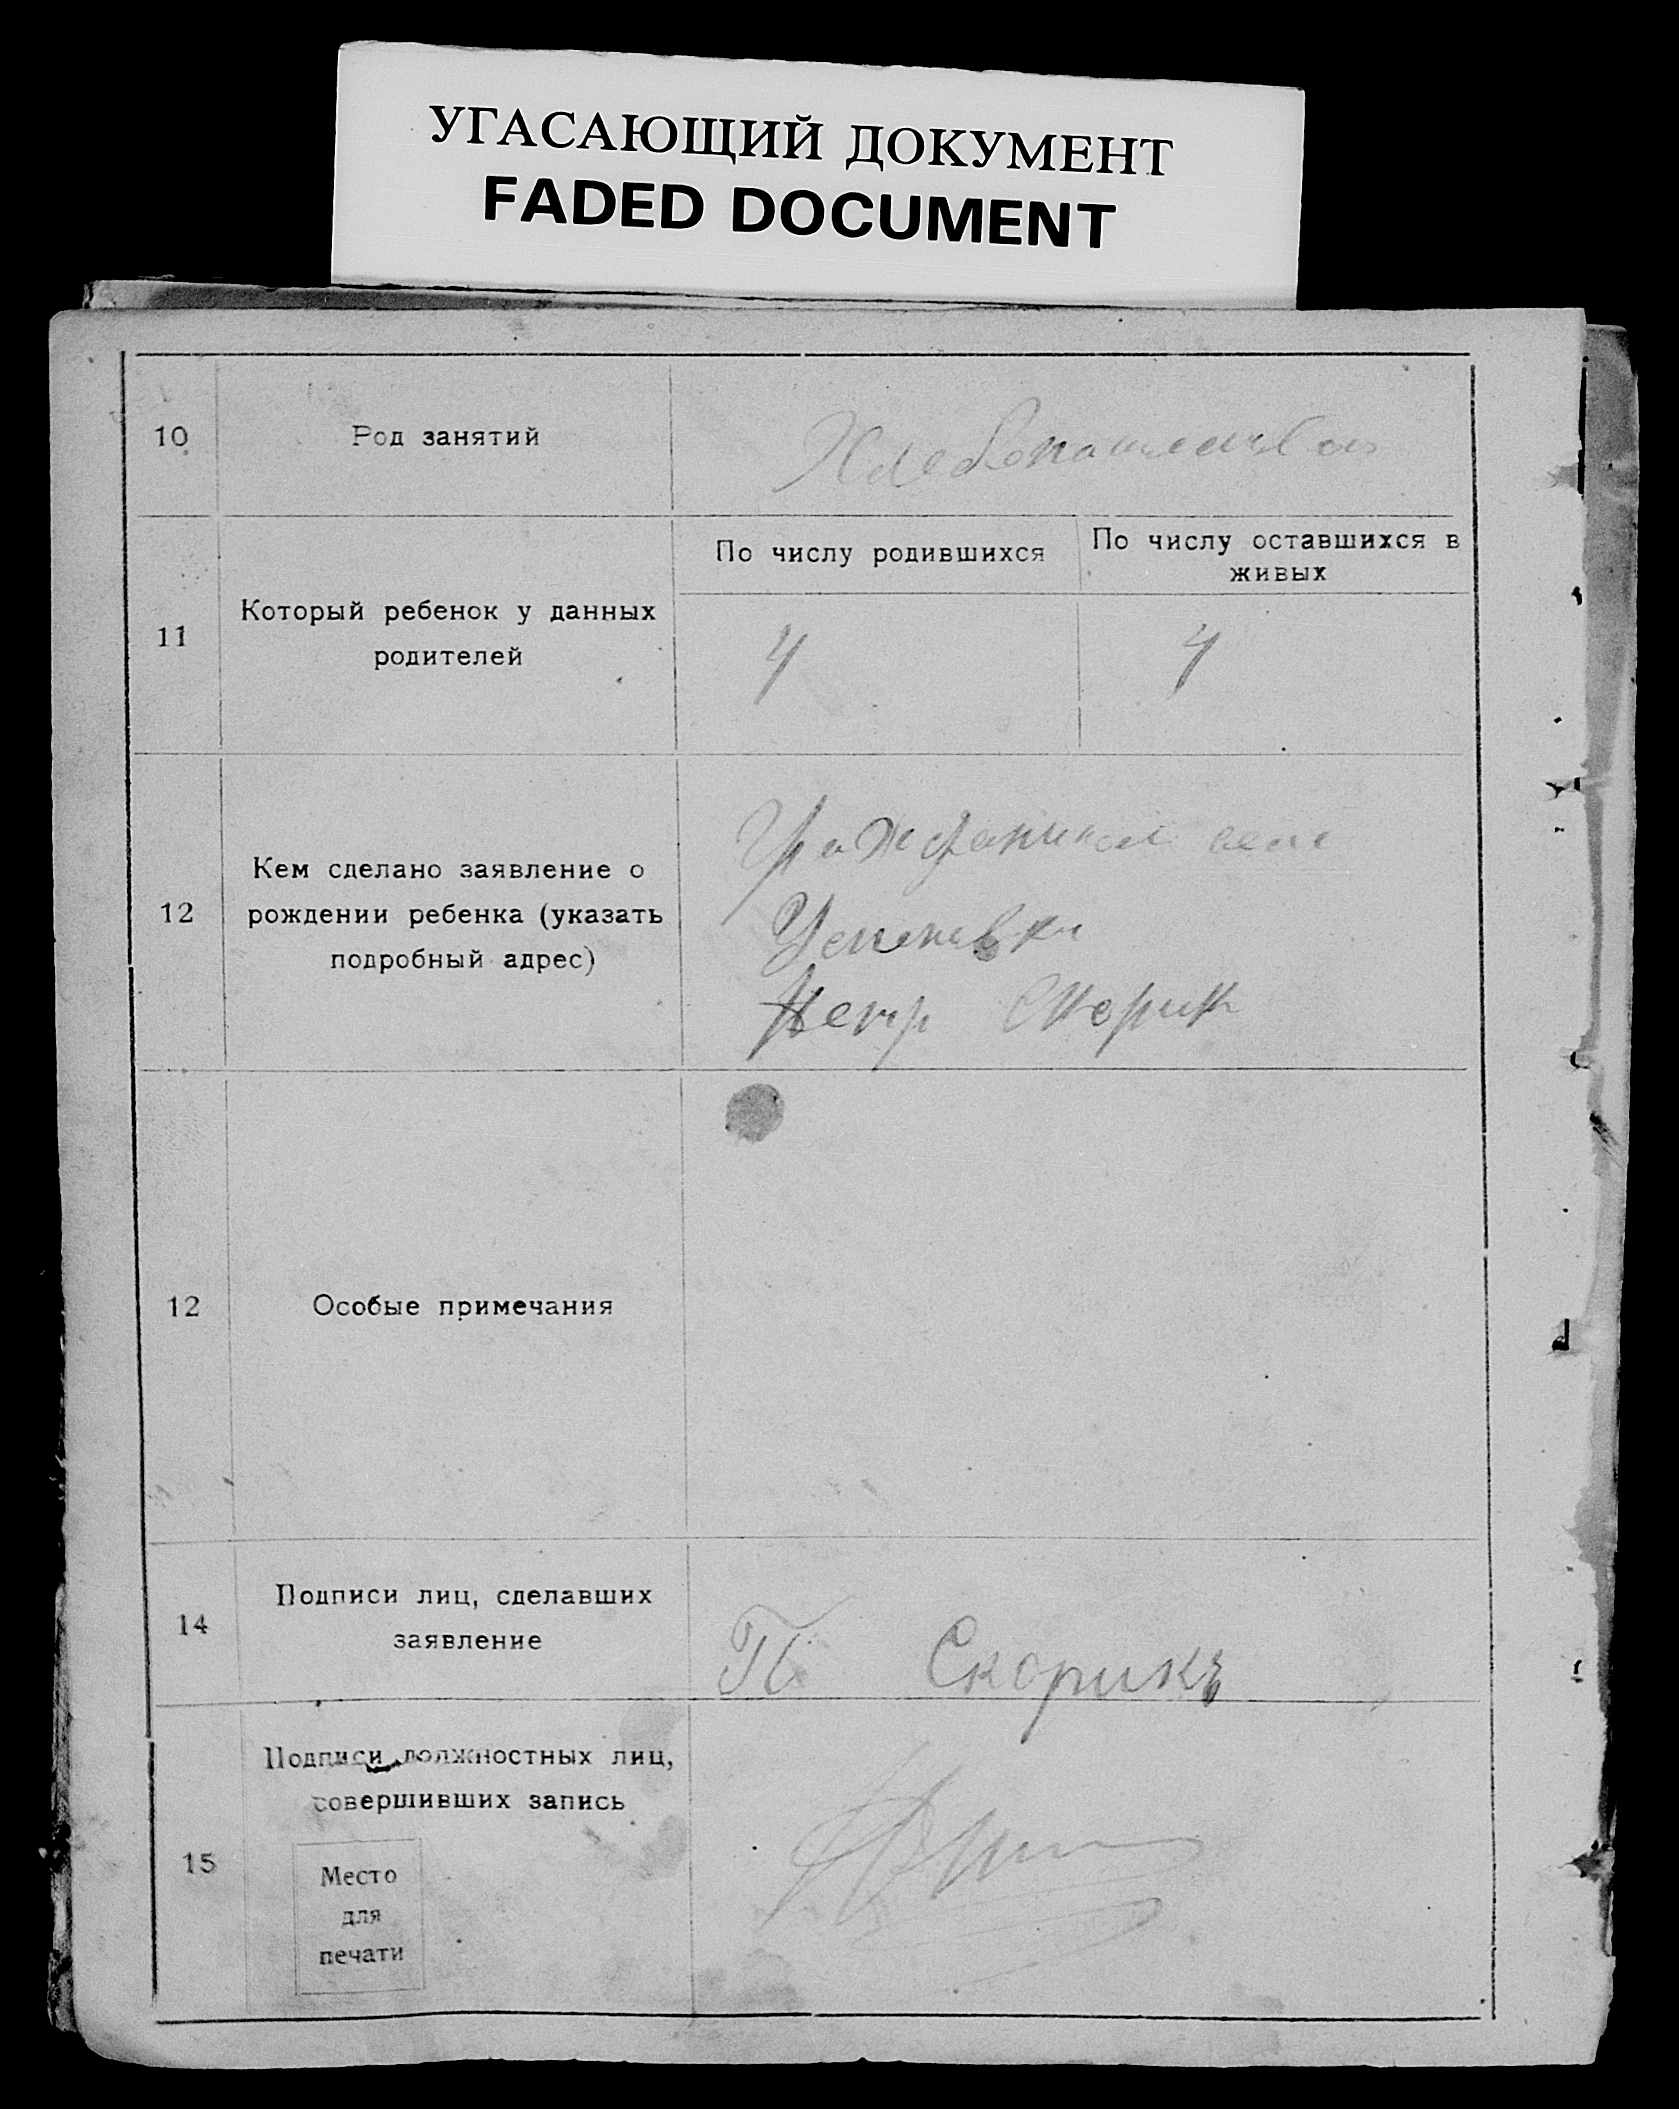 УГАСАЮЩИЙ ДОКУМЕНТ
FADED DOCUMENT
10
Род занятий
Хлебопашество
11
Который ребенок у данных
родителей
По числу родившихся
По числу оставшихся в
живых
4
4
12
Кем сделано заявление о
рождении ребенка (указать
подробный адрес)
Гражданином села
Петр Скорик
12
Особые примечания
14
Подписи лиц, сделавших
заявление
П Скорикъ
15
Подписи должностных лиц,
совершивших запись
Место
для
печати